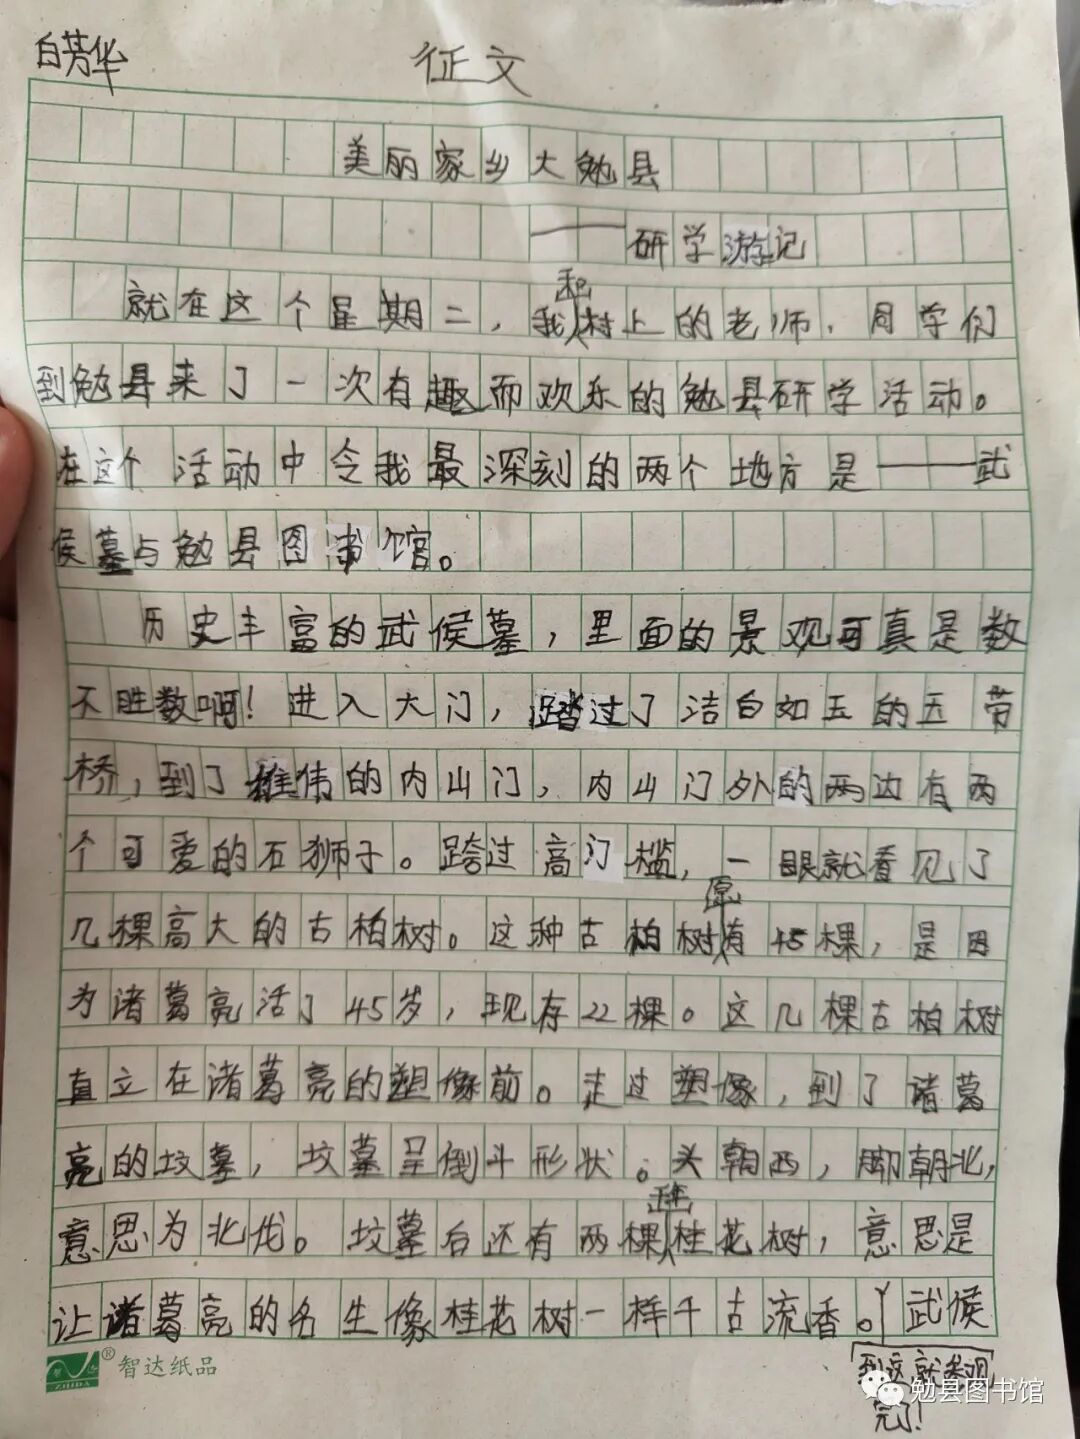 白芳华
征文
美丽家乡大勉县
——研学游记
就在这个星期二，我和村上的老师、同学们
到勉县来了一次有趣而欢乐的勉县研学活动。
在这个活动中令我最深刻的两个地方是——武
侯墓与勉县图书馆。
历史丰富的武侯墓，里面的景观可真是数
不胜数啊！进入大门，踏过了洁白如玉的玉带
桥，到了雄伟的内山门，内山门外的两边有两
个可爱的石狮子。跨过高门槛，一眼就看见了
几棵高大的古柏树。这种古柏树原有45棵，是因
为诸葛亮活了45岁，现存22棵。这几棵古柏树
直立在诸葛亮的塑像前。走过塑像，到了诸葛
亮的坟墓，坟墓呈倒斗形状。头朝西，脚朝北，
意思为北伐。坟墓后还有两棵桂花树，意思是
让诸葛亮的名生像桂花树一样千古流香。武侯
到这就参观
完了！
智达纸品
ZHIDA
勉县图书馆